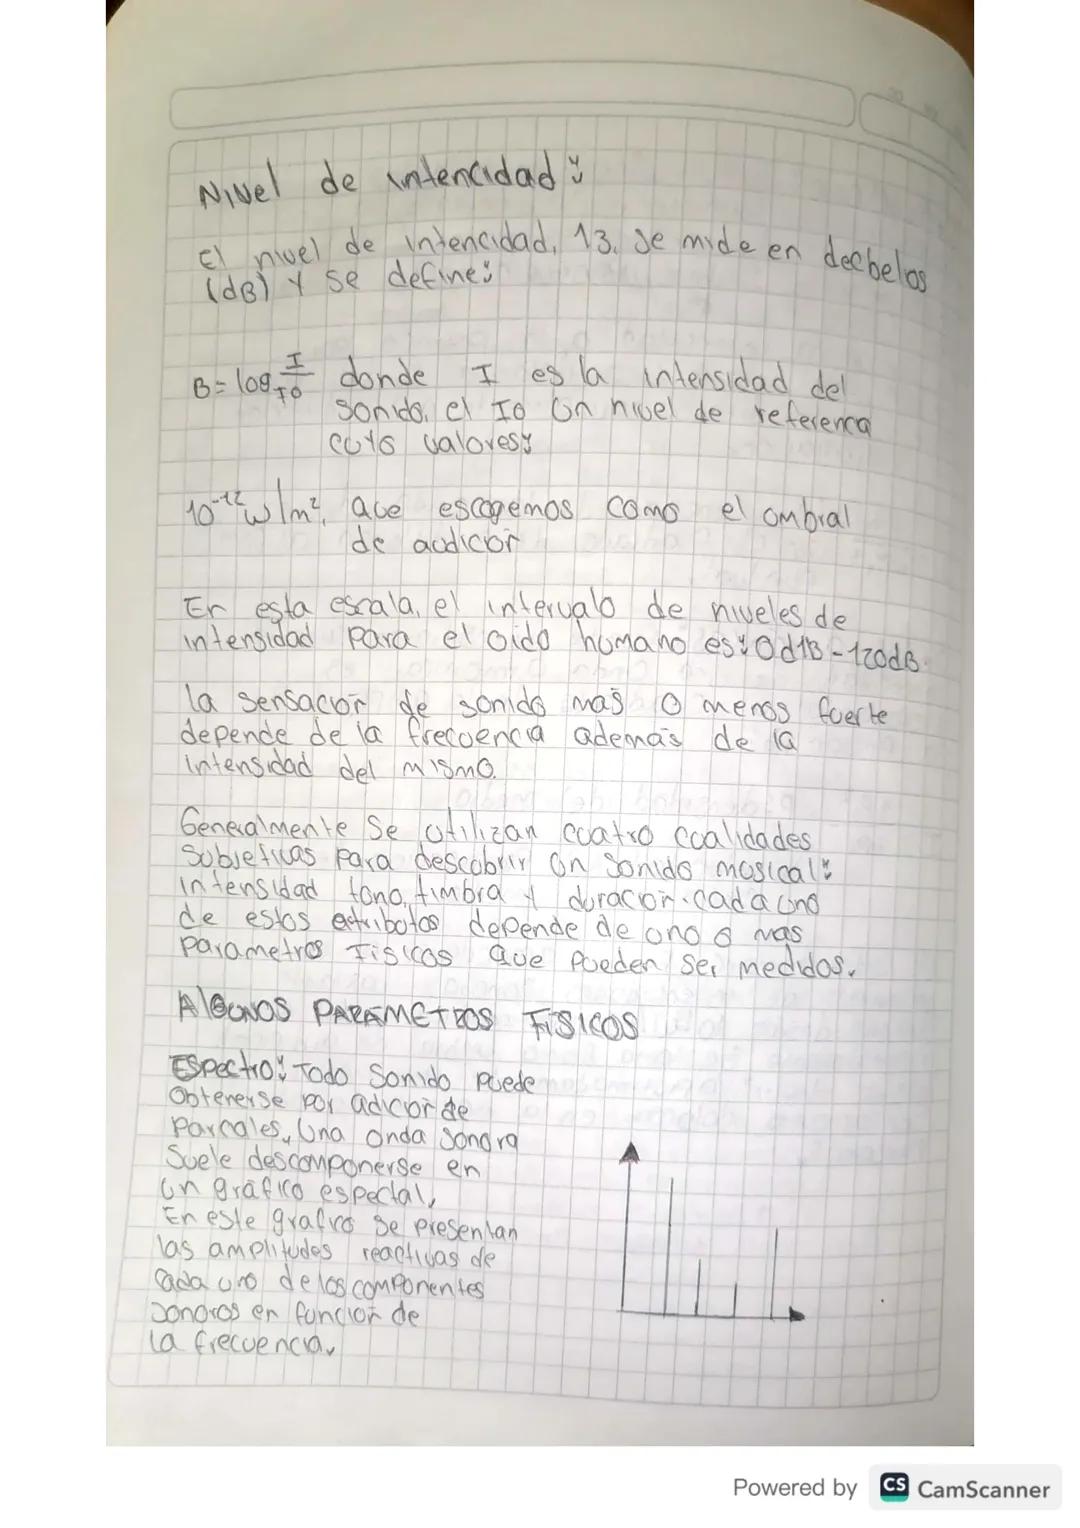 Nivel de intencidad:
El nivel de intencidad, 13, se mide en decbelos
(dB) Y se define:
B = log I/I0 donde I es la intensidad del
sonido, el I0 un nivel de referenca
cuyo valores:
10⁻¹² w/m², que escogemos como el ombral
de audicion
En esta escala, el intervalo de niveles de
intensidad para el oido humano es: 0d1B - 120dB.
la sensacion de sonido mas o menos fuerte
depende de la frecuencia además de la
intensidad del mismo.
Generalmente se utilizan cuatro cualidades
subjetivas para descobrir un sonido musical:
intensidad tono, timbra y duracion. cada uno
de estos atributos depende de uno o mas
parametros Fisicos que pueden ser medidos.
AlGUNOS PARAMETROS FISICOS
Espectro: Todo sonido puede
Obtenerse por adicion de
parcales, Una onda sonora
Suele descomponerse en
un gráfico espectal,
En este grafico se presentan
las amplitudes reactivas de
cada uno de los componentes
sonoros en función de
la frecuencia,
Powered by CS CamScanner